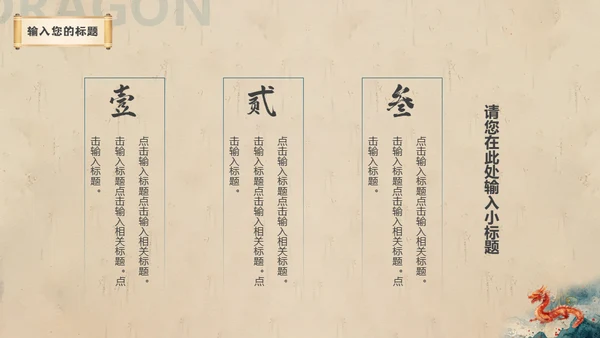 DRAGON
输入您的标题
壹
点击输入标题点击输入相关标题。
击输入标题点击输入相关标题。点
击输入标题。
贰
点击输入标题点击输入相关标题。
击输入标题点击输入相关标题。点
击输入标题。
叁
点击输入标题点击输入相关标题。
击输入标题点击输入相关标题。点
击输入标题。
请您在此处输入小标题